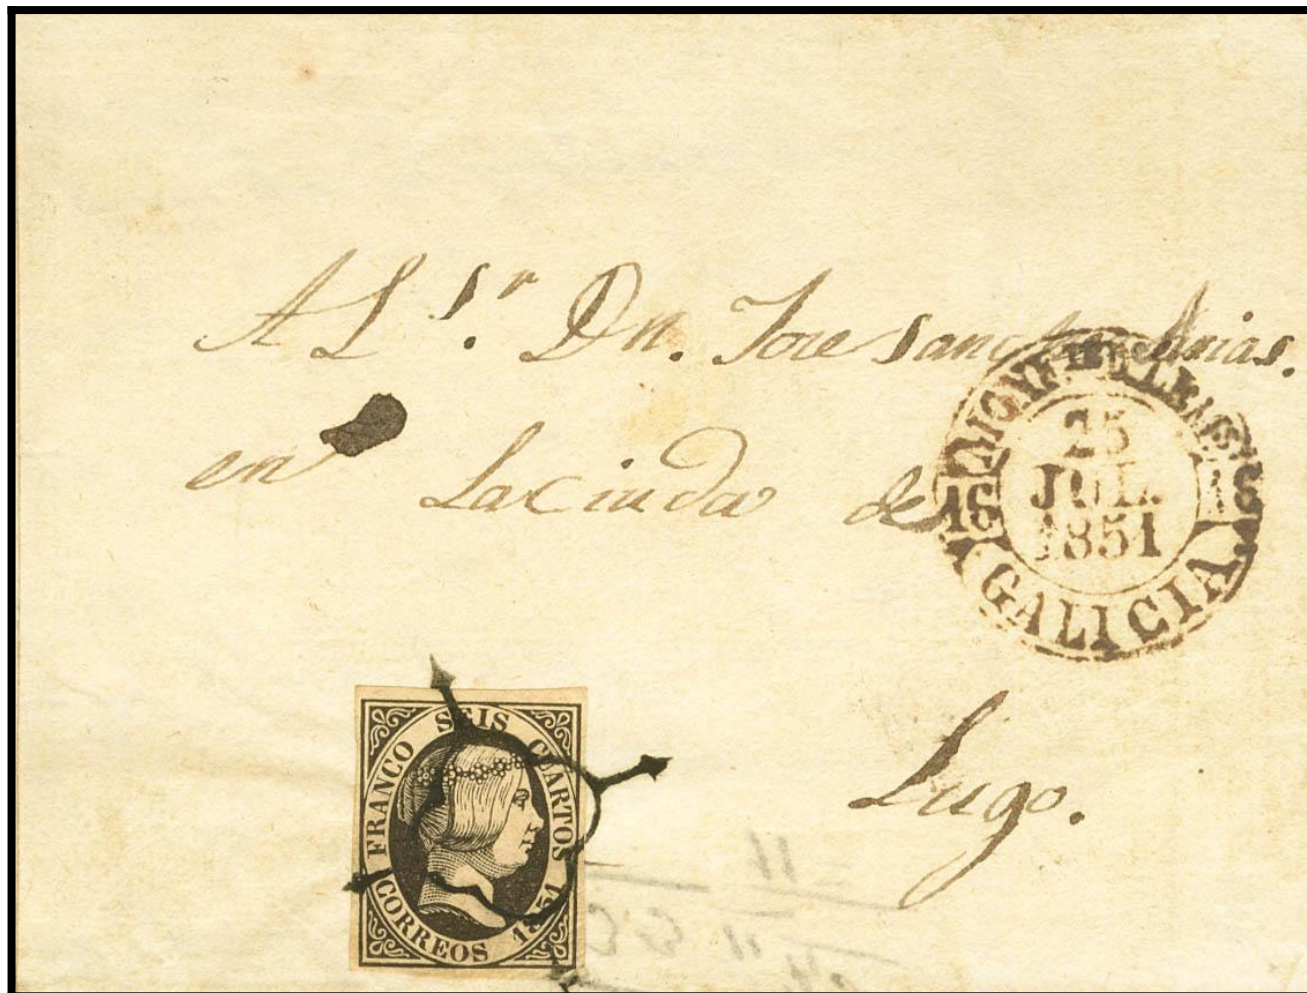 Al S.r Dn. Jose Sanchez Arias.
en La Ciuda de
25
JUL.
1851
GALICIA.
Lugo.
FRANCO SEIS CUARTOS
CORREOS 1851